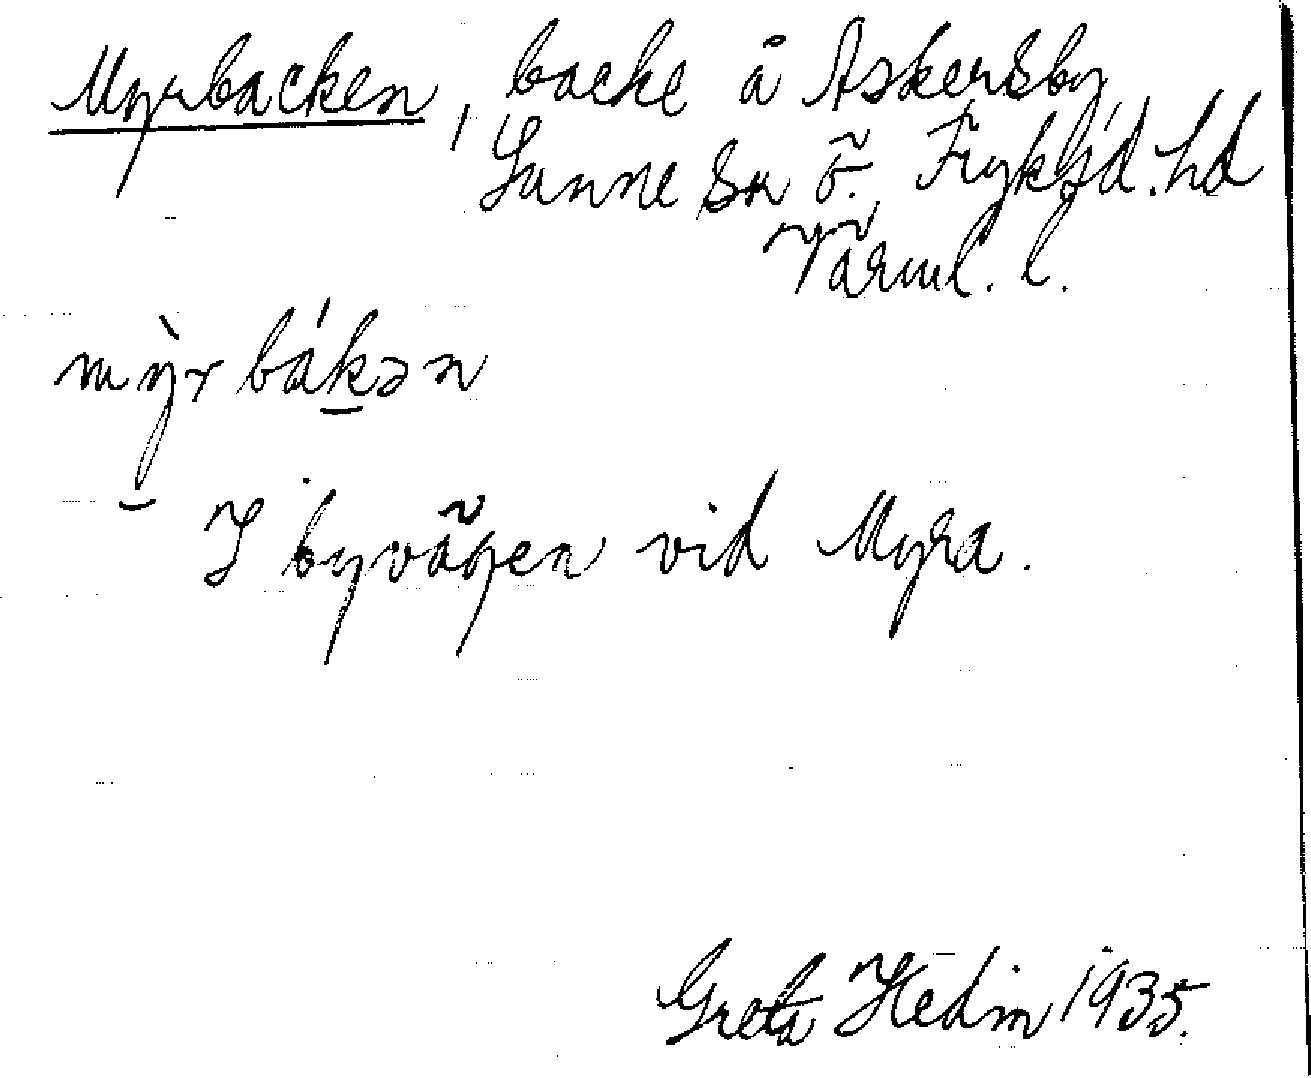 Myrbacken, backe å Askersby
Sunne Sn Ö. Fryksd. hd
Värml. l.
mỳr bákən
I byvägen vid Myra.
Greta Hedin 1935.